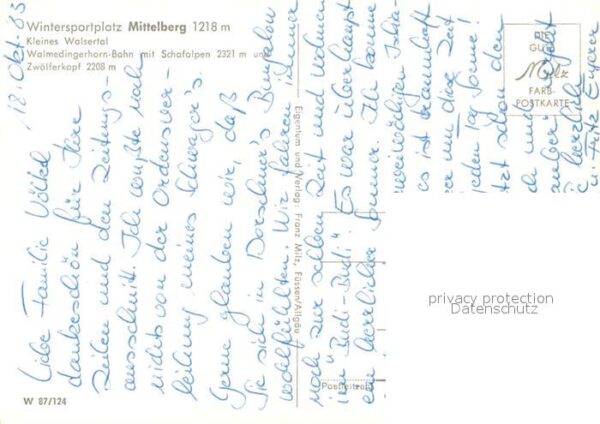 Wintersportplatz Mittelberg 1218 m
Kleines Walsertal
Walmedingerhorn-Bahn mit Schafalpen 2321 m und
Zwölferkopf 2208 m
18. Okt. 83
Liebe Familie Völkel
dankeschön für Ihre
Zeilen und den Zeitungs-
ausschnitt. Ich wußte noch
nichts von der Ordensver-
leihung meines Schwager's.
Gerne glauben wir, daß
Sie sich in Dorschner's Bungalow
wohlfühlten. Wir fahren immer
noch zur selben Zeit und wohnen
im "Rudi-Budi". Es war überhaupt
ein herrlicher Sommer. Ich komme
es ist traumhaft
um diese Zeit
jeden Tag Sonne!
tzt schon den
herzlich
Fritz
Eigentum und Verlag: Franz Milz, Füssen/Allgäu
DIE
GUTE
Milz
FARB-
POSTKARTE
Postleitzahl
W 87/124
privacy protection
Datenschutz